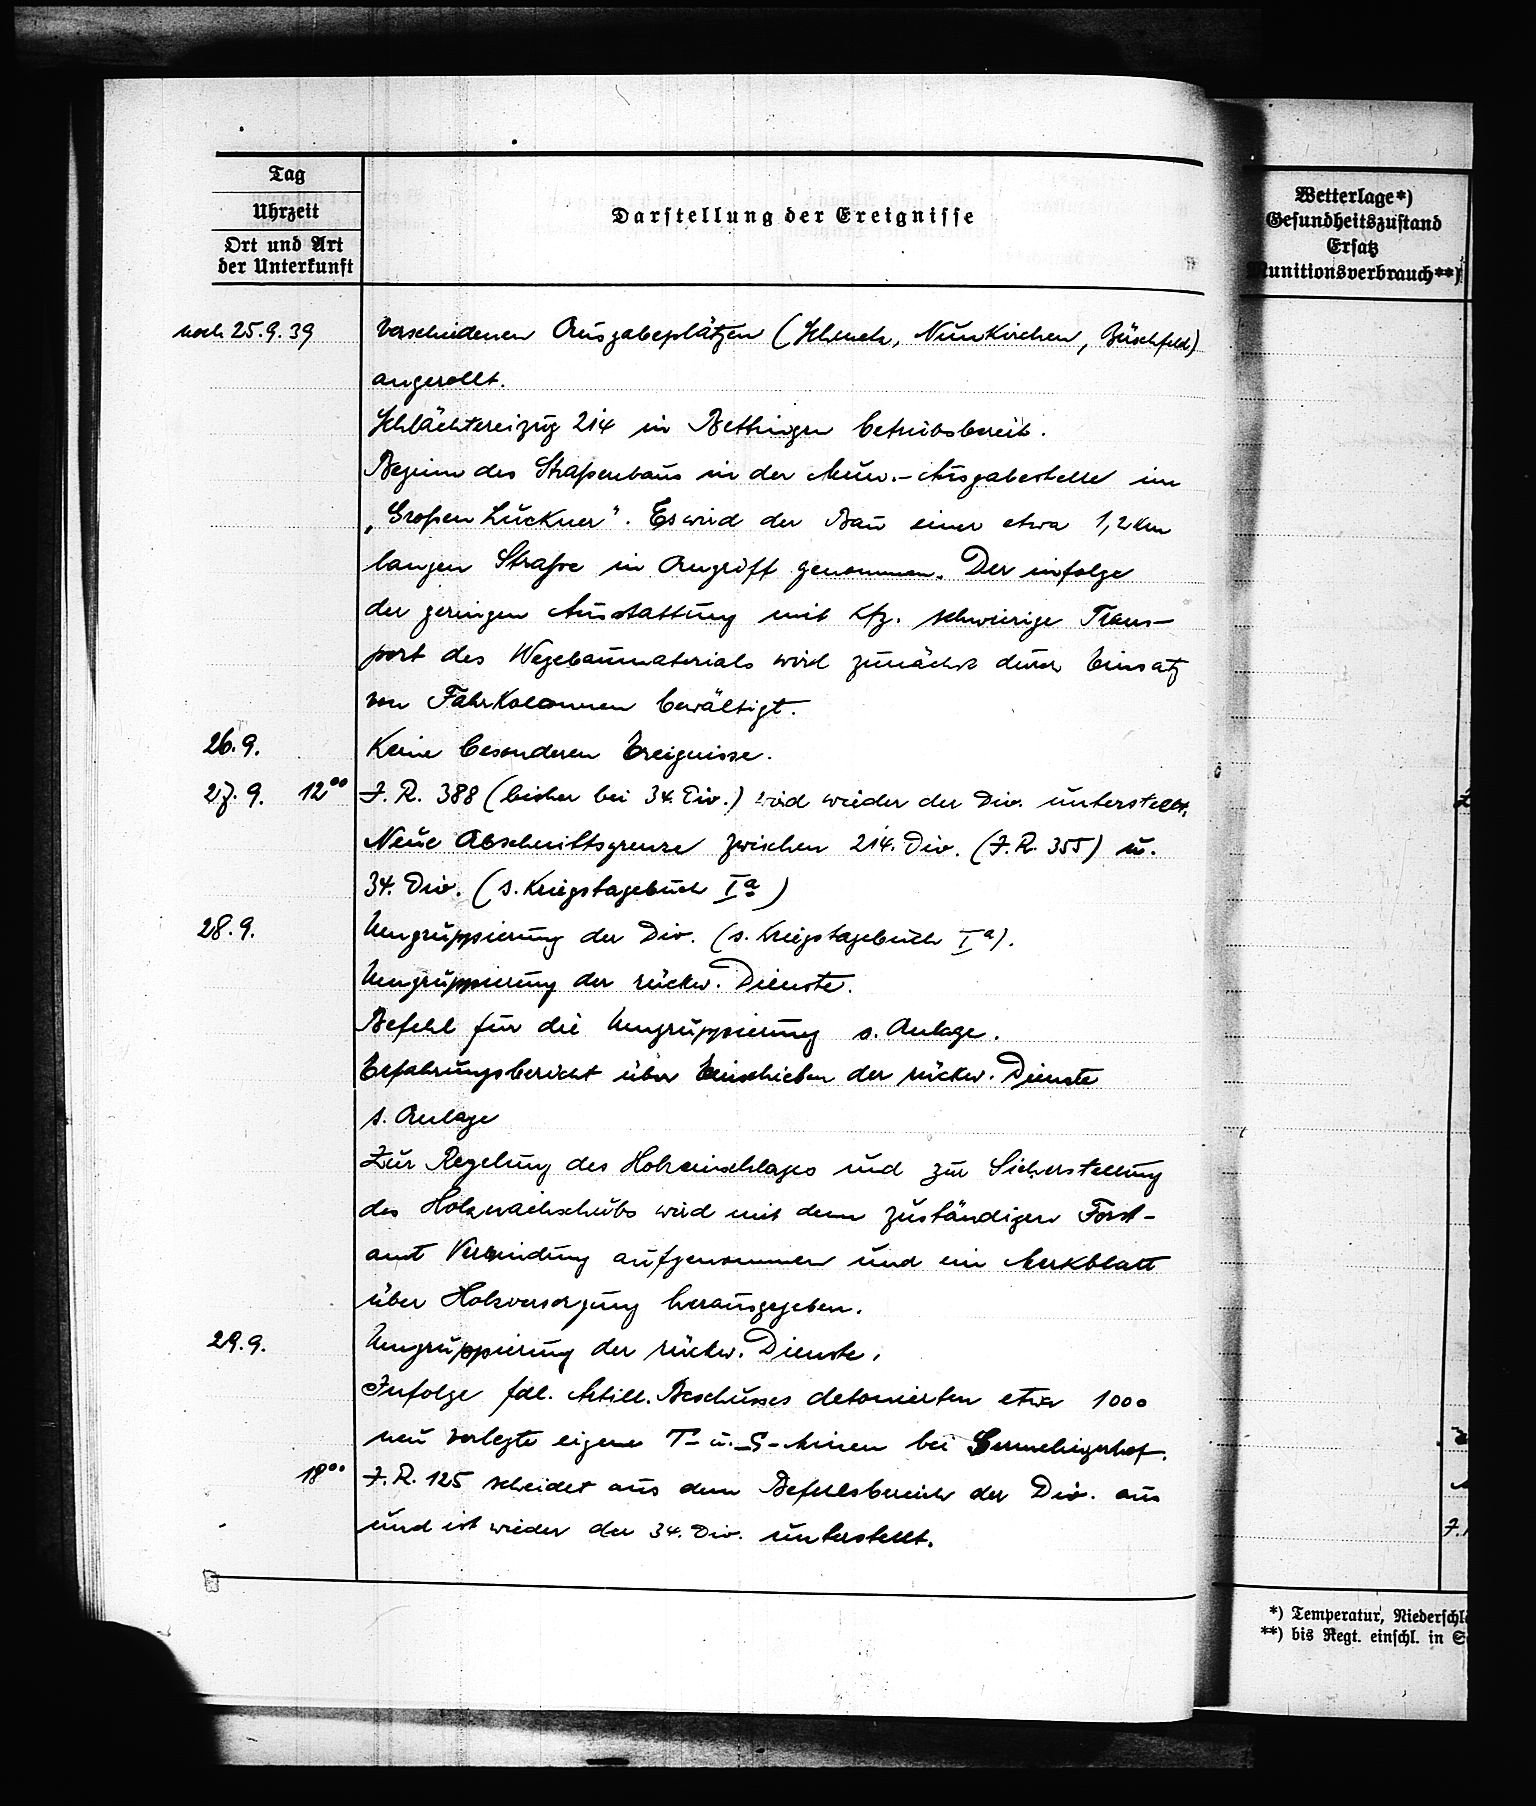 Tag
Uhrzeit
Ort und Art
der Unterkunft
Darstellung der Ereignisse
noch 25.9.39 verschiedenen Ausgabeplätzen (Schmelz, Nunkirchen, Büschfeld)
angerollt.
Schlächtereizug 214 in Bettingen betriebsbereit.
Beginn des Straßenbaus in der Mun.-Ausgabestelle im
„Großen Lückner". Es wird der Bau einer etwa 1,2 km
langen Straße in Angriff genommen. Der infolge
der geringen Ausstattung mit Kfz. schwierige Trans-
port des Wegebaumaterials wird zunächst durch Einsatz
von Fahrkolonnen bewältigt.
26.9. Keine besonderen Ereignisse.
27.9. 12⁰⁰ J.R. 388 (bisher bei 34. Div.) wird wieder der Div. unterstellt.
Neue Abschnittsgrenze zwischen 214. Div. (J.R. 355) u.
34. Div. (s. Kriegstagebuch Ia)
28.9. Umgruppierung der Div. (s. Kriegstagebuch Ia).
Umgruppierung der rückw. Dienste.
Befehl für die Umgruppierung s. Anlage.
Erfahrungsbericht über Einschieben der rückw. Dienste
s. Anlage
Zur Regelung des Holzeinschlages und zur Sicherstellung
des Holznachschubs wird mit dem zuständigen Forst-
amt Verbindung aufgenommen und ein Merkblatt
über Holzversorgung herausgegeben.
29.9. Umgruppierung der rückw. Dienste.
Infolge fdl. Artill. Beschusses detonierten etwa 1000
neu verlegte eigene T- u. S-Minen bei
18⁰⁰ J.R. 125 scheidet aus dem Befehlsbereich der Div. aus
und ist wieder der 34. Div. unterstellt.
Wetterlage*)
Gesundheitszustand
Ersatz
Munitionsverbrauch**)
*) Temperatur, Niederschl
**) bis Regt. einschl. in